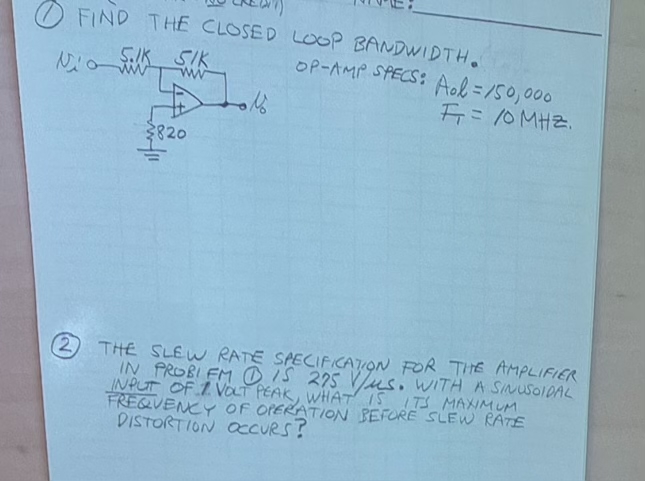 ① FIND THE CLOSED LOOP BANDWIDTH.
OP-AMP SPECS: Aol = 150,000
F_T = 10 MHZ.
Ni 5.1K 51K
- + No
820
② THE SLEW RATE SPECIFICATION FOR THE AMPLIFIER
IN PROBLEM ① IS 275 V/μs. WITH A SINUSOIDAL
INPUT OF 1 VOLT PEAK, WHAT IS ITS MAXIMUM
FREQUENCY OF OPERATION BEFORE SLEW RATE
DISTORTION OCCURS?